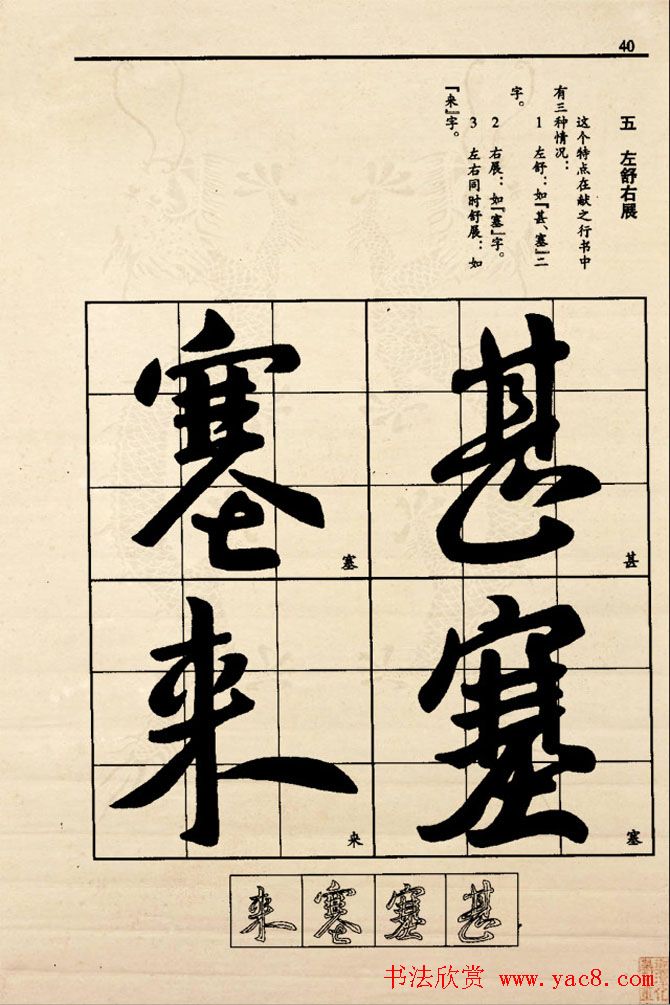 40
五 左舒右展
这个特点在献之行书中
有三种情况：
1 左舒：如『甚、塞』二
字。
2 右展：如『塞』字。
3 左右同时舒展：如
『来』字。
甚
甚
塞
塞
塞
塞
来
来
甚
塞
塞
来
书法欣赏 www.yac8.com